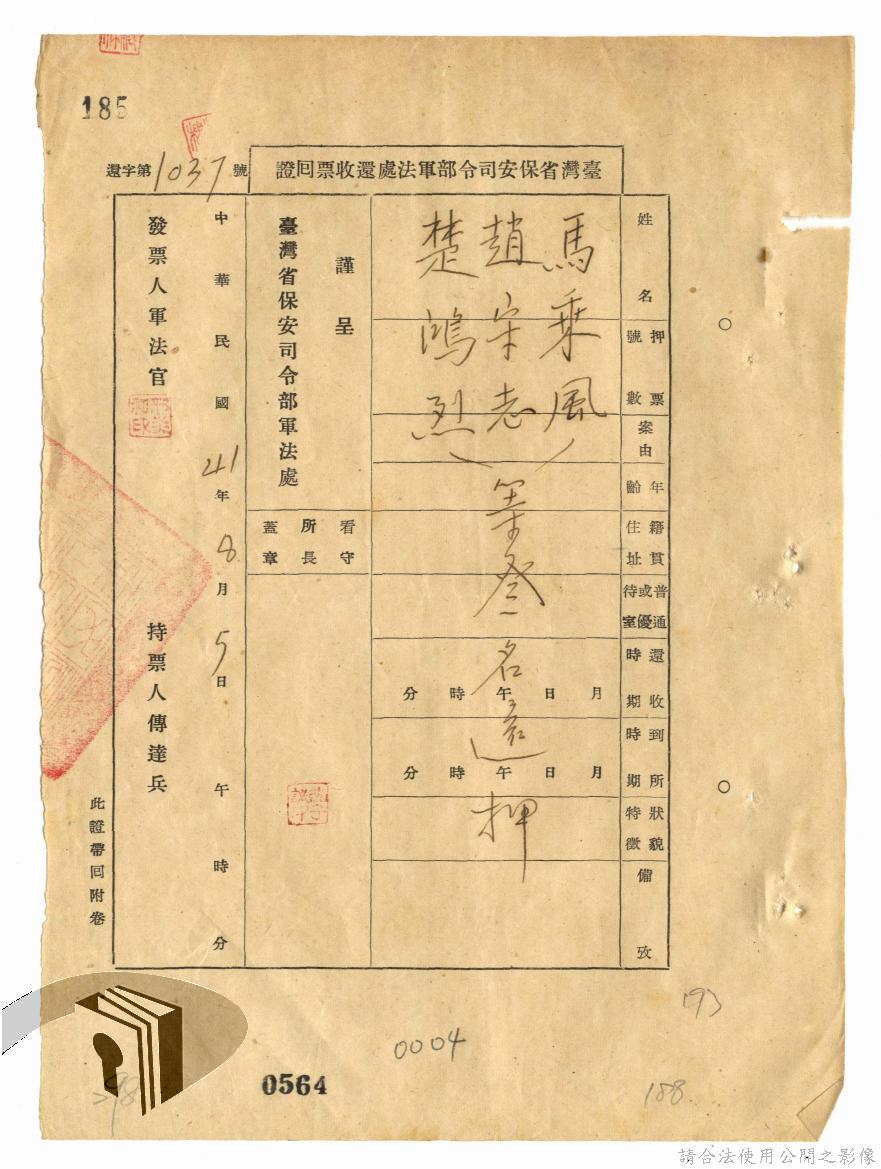 185
臺灣省保安司令部軍法處還收票回證
還字第1037號
姓名
押票號數
案由
年齡
籍貫住址
普通或優待室
還收時期
到所時期
狀貌特徵
備攷
馬乘風
趙宋志
楚鴻烈
等叁名還押
月日午時分
月日午時分
謹呈
臺灣省保安司令部軍法處
看守所長蓋章
中華民國41年8月5日午時分
發票人軍法官
持票人傳達兵
此證帶回附卷
193
0004
0564
298
188
請合法使用公開之影像